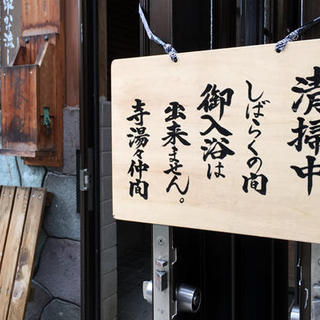 清掃中
しばらくの間
御入浴は
出来ません。
寺湯々仲間